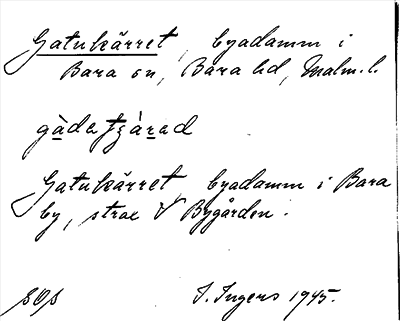 Gatukärret, byadamm i
Bara sn, Bara hd, Malm. l.
gàdatʃàrad
Gatukärret, byadamm i Bara
by, strax V Bygården.
I. Ingers 1945.